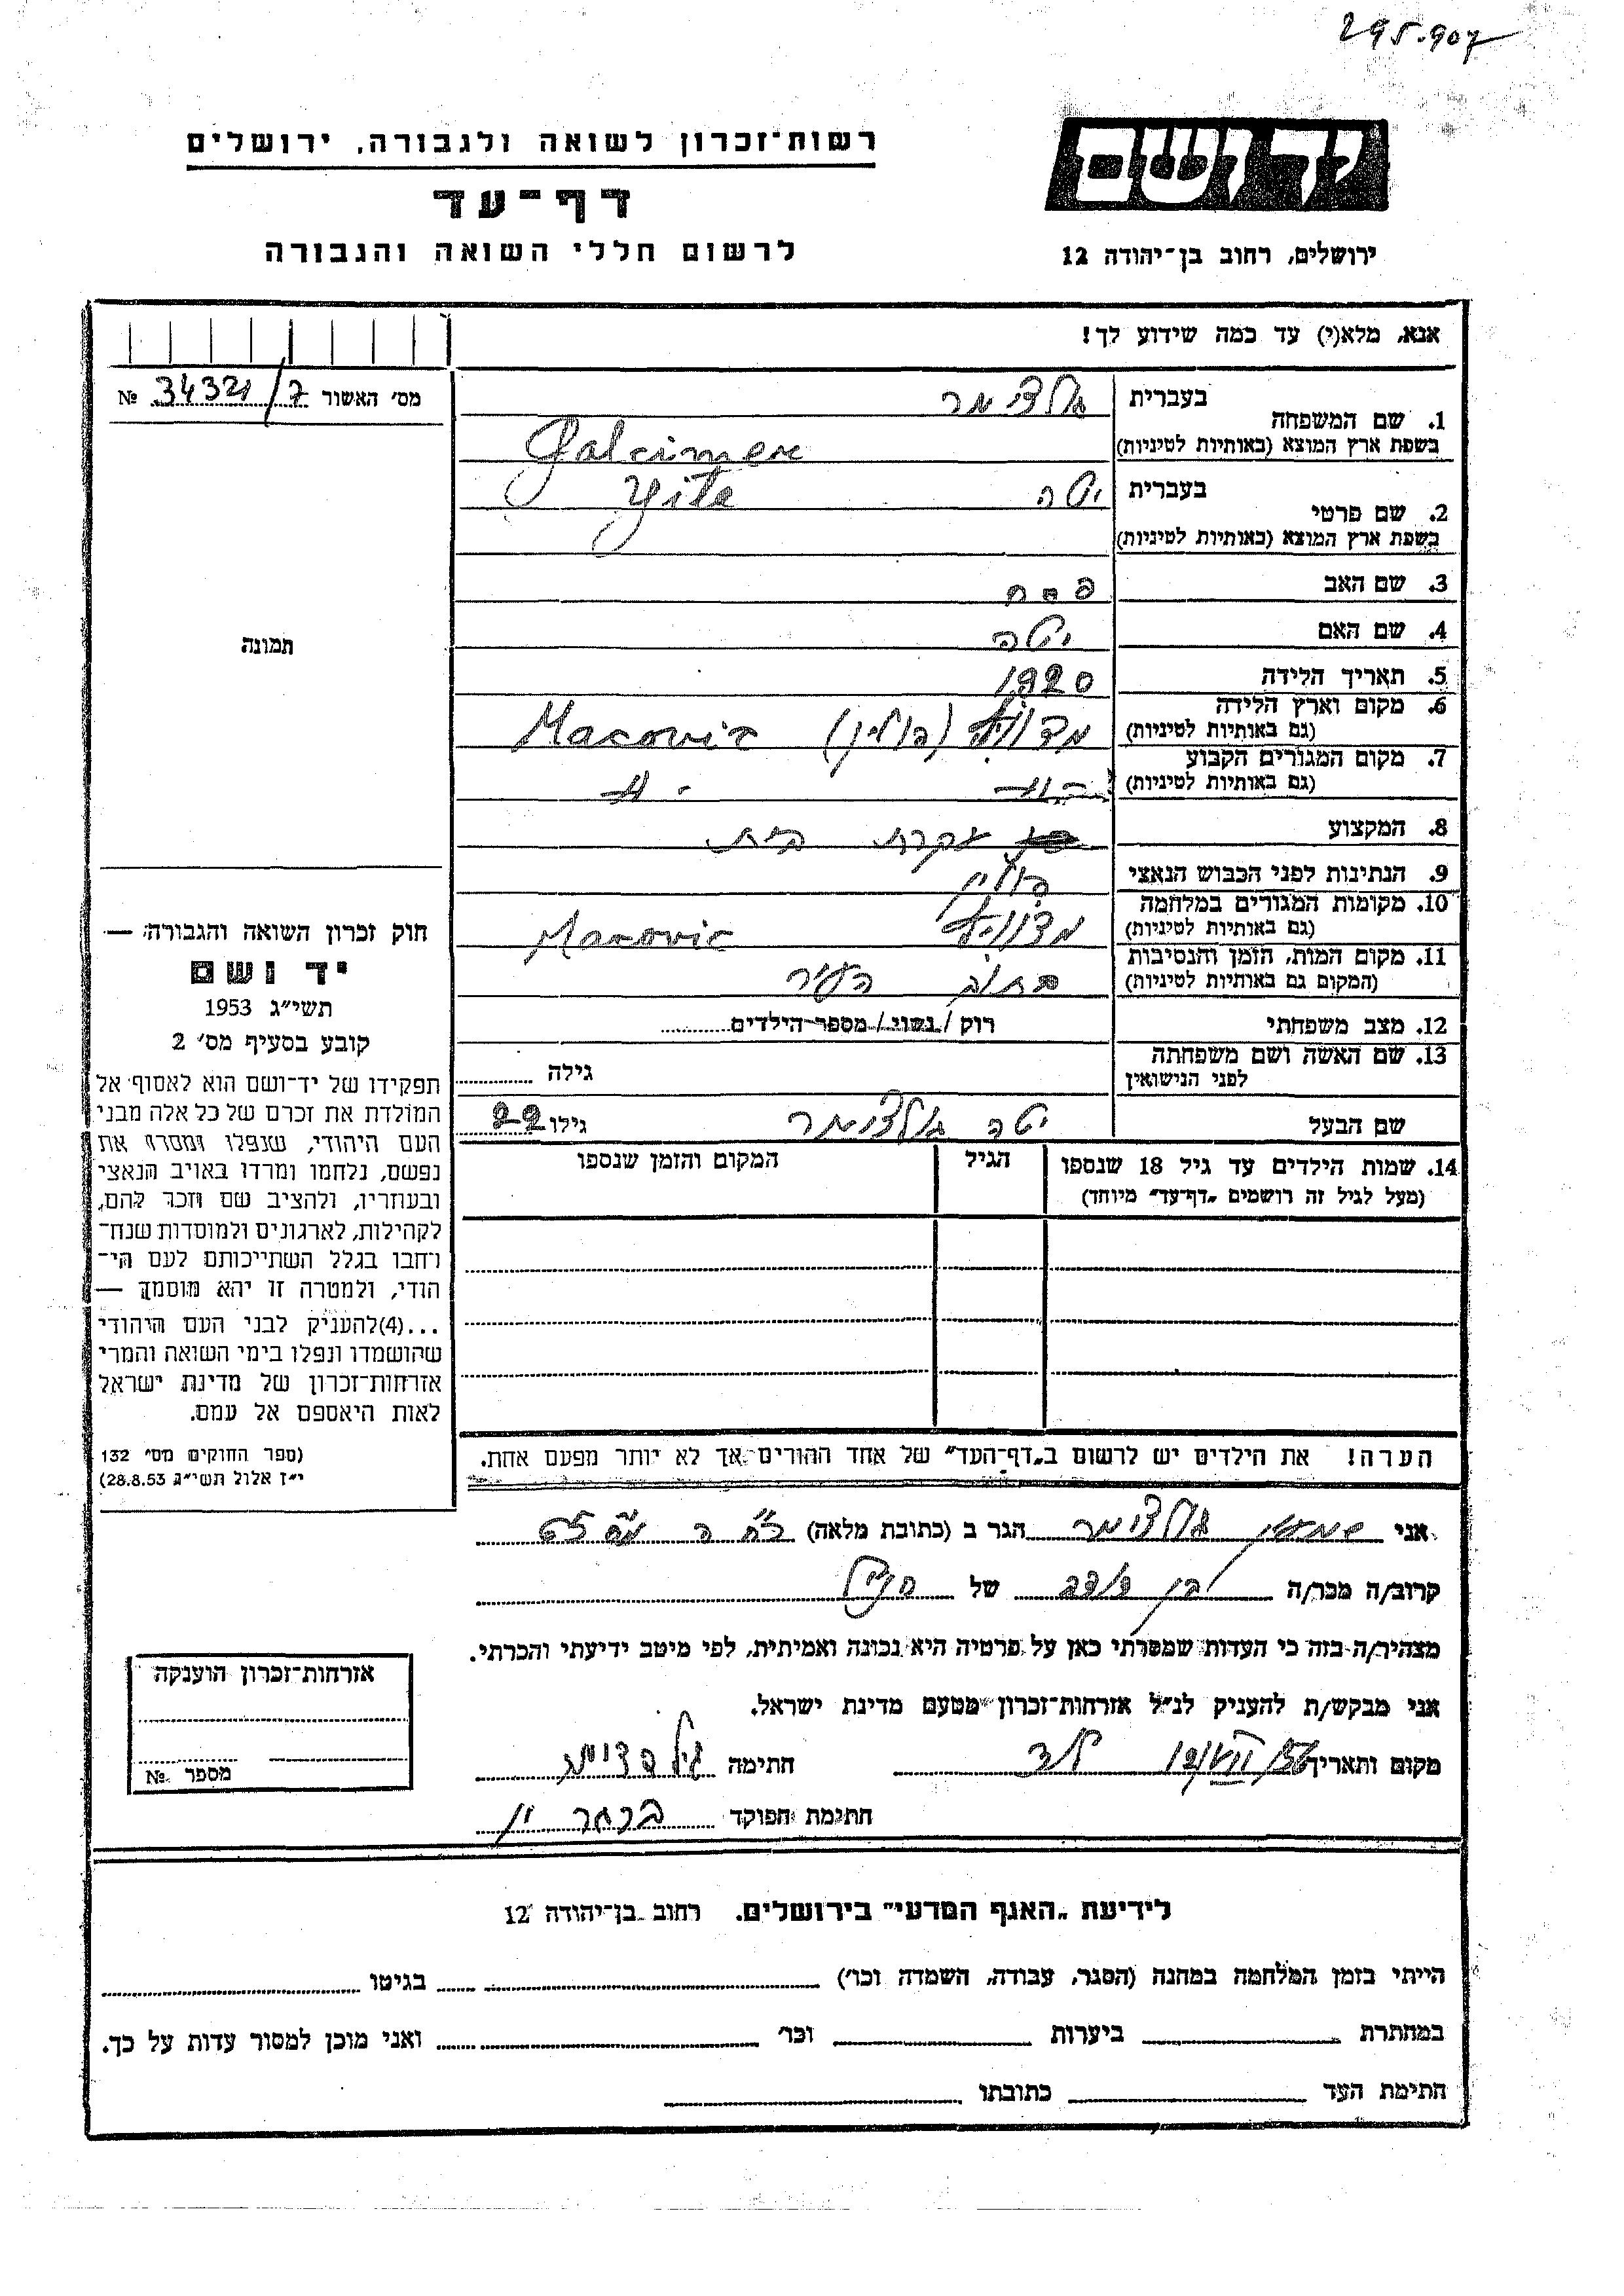 295.907
יד ושם
ירושלים, רחוב בן־יהודה 12
רשות־זכרון לשואה ולגבורה, ירושלים
דף־עד
לרשום חללי השואה והגבורה
אנא, מלא(י) עד כמה שידוע לך!
מס׳ האשור 34321/7 №
1. שם המשפחה בעברית גלצימר
בשפת ארץ המוצא (באותיות לטיניות) Galcimer
2. שם פרטי בעברית יטה Yite
בשפת ארץ המוצא (באותיות לטיניות)
3. שם האב פסח
4. שם האם יטה
5. תאריך הלידה 1920
6. מקום וארץ הלידה (פולין)
(גם באותיות לטיניות)
7. מקום המגורים הקבוע
(גם באותיות לטיניות)
8. המקצוע עקרת בית
9. הנתינות לפני הכבוש הנאצי פולין
10. מקומות המגורים במלחמה
(גם באותיות לטיניות)
11. מקום המות, הזמן והנסיבות
(המקום גם באותיות לטיניות) בתוך העיר
12. מצב משפחתי רוק / נשוי / מספר הילדים
13. שם האשה ושם משפחתה
לפני הנישואין גילה
שם הבעל יטה גלצימר גילו 22
14. שמות הילדים עד גיל 18 שנספו
(מעל לגיל זה רושמים „דף־עד״ מיוחד)
הגיל
המקום והזמן שנספו
הערה! את הילדים יש לרשום ב„דף־העד״ של אחד ההורים אך לא יותר מפעם אחת.
תמונה
חוק זכרון השואה והגבורה —
יד ושם
תשי״ג 1953
קובע בסעיף מס׳ 2
תפקידו של יד־ושם הוא לאסוף אל
המולדת את זכרם של כל אלה מבני
העם היהודי, שנפלו ומסרו את
נפשם, נלחמו ומרדו באויב הנאצי
ובעוזריו, ולהציב שם וזכר להם,
לקהילות, לארגונים ולמוסדות שנח־
רחבו בגלל השתייכותם לעם הי־
הודי, ולמטרה זו יהא מוסמך —
...(4)להעניק לבני העם היהודי
שהושמדו ונפלו בימי השואה והמרי
אזרחות־זכרון של מדינת ישראל
לאות היאספם אל עמם.
(ספר החוקים מס׳ 132
י״ז אלול תשי״ג 28.8.53)
אני שמעון גלצימר הגר ב (כתובת מלאה)
קרוב/ה מכר/ה בן דוד של הנ״ל
מצהיר/ה בזה כי העדות שמסרתי כאן על פרטיה היא נכונה ואמיתית, לפי מיטב ידיעתי והכרתי.
אני מבקש/ת להעניק לנ״ל אזרחות־זכרון מטעם מדינת ישראל.
מקום ותאריך לוד חתימה
חתימת הפוקד
אזרחות־זכרון הוענקה
מספר №
לידיעת „האגף המדעי״ בירושלים. רחוב בן־יהודה 12
הייתי בזמן המלחמה במחנה (הסגר, עבודה, השמדה וכו׳) בגיטו
במחתרת ביערות וכו׳ ואני מוכן למסור עדות על כך.
חתימת העד כתובתו